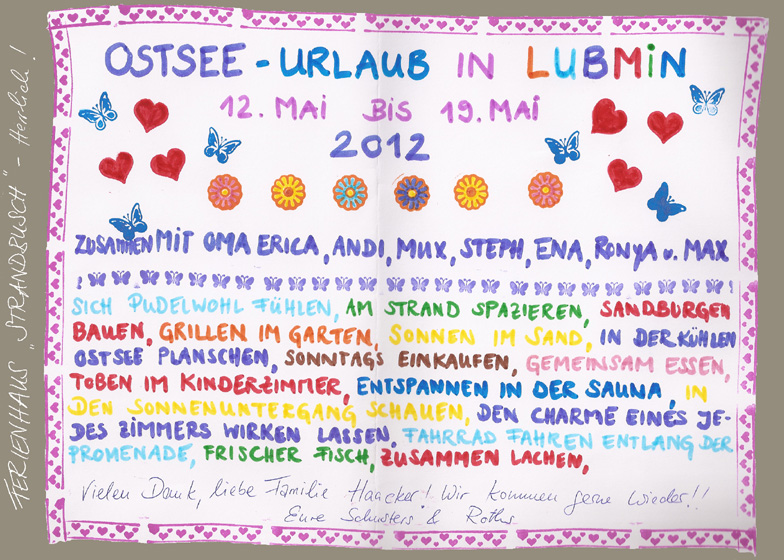 OSTSEE - URLAUB IN LUBMiN
12. MAi BiS 19. MAi
2012
ZUSAMMEN MiT OMA ERICA, ANDI, MUX, STEPH, ENA, RONYA u. MAX
SICH PUDELWOHL FÜHLEN, AM STRAND SPAZIEREN, SANDBURGEN
BAUEN, GRILLEN IM GARTEN, SONNEN IM SAND, IN DER KÜHLEN
OSTSEE PLANSCHEN, SONNTAGS EINKAUFEN, GEMEINSAM ESSEN,
TOBEN IM KINDERZIMMER, ENTSPANNEN IN DER SAUNA, IN
DEN SONNENUNTERGANG SCHAUEN, DEN CHARME EINES JE-
DES ZIMMERS WIRKEN LASSEN, FAHRRAD FAHREN ENTLANG DER
PROMENADE, FRISCHER FISCH, ZUSAMMEN LACHEN,
Vielen Dank, liebe Familie Haacker! Wir kommen gerne wieder!!
Eure Schusters & Roths
FERIENHAUS „STRANDBUSCH" - Herrlich!